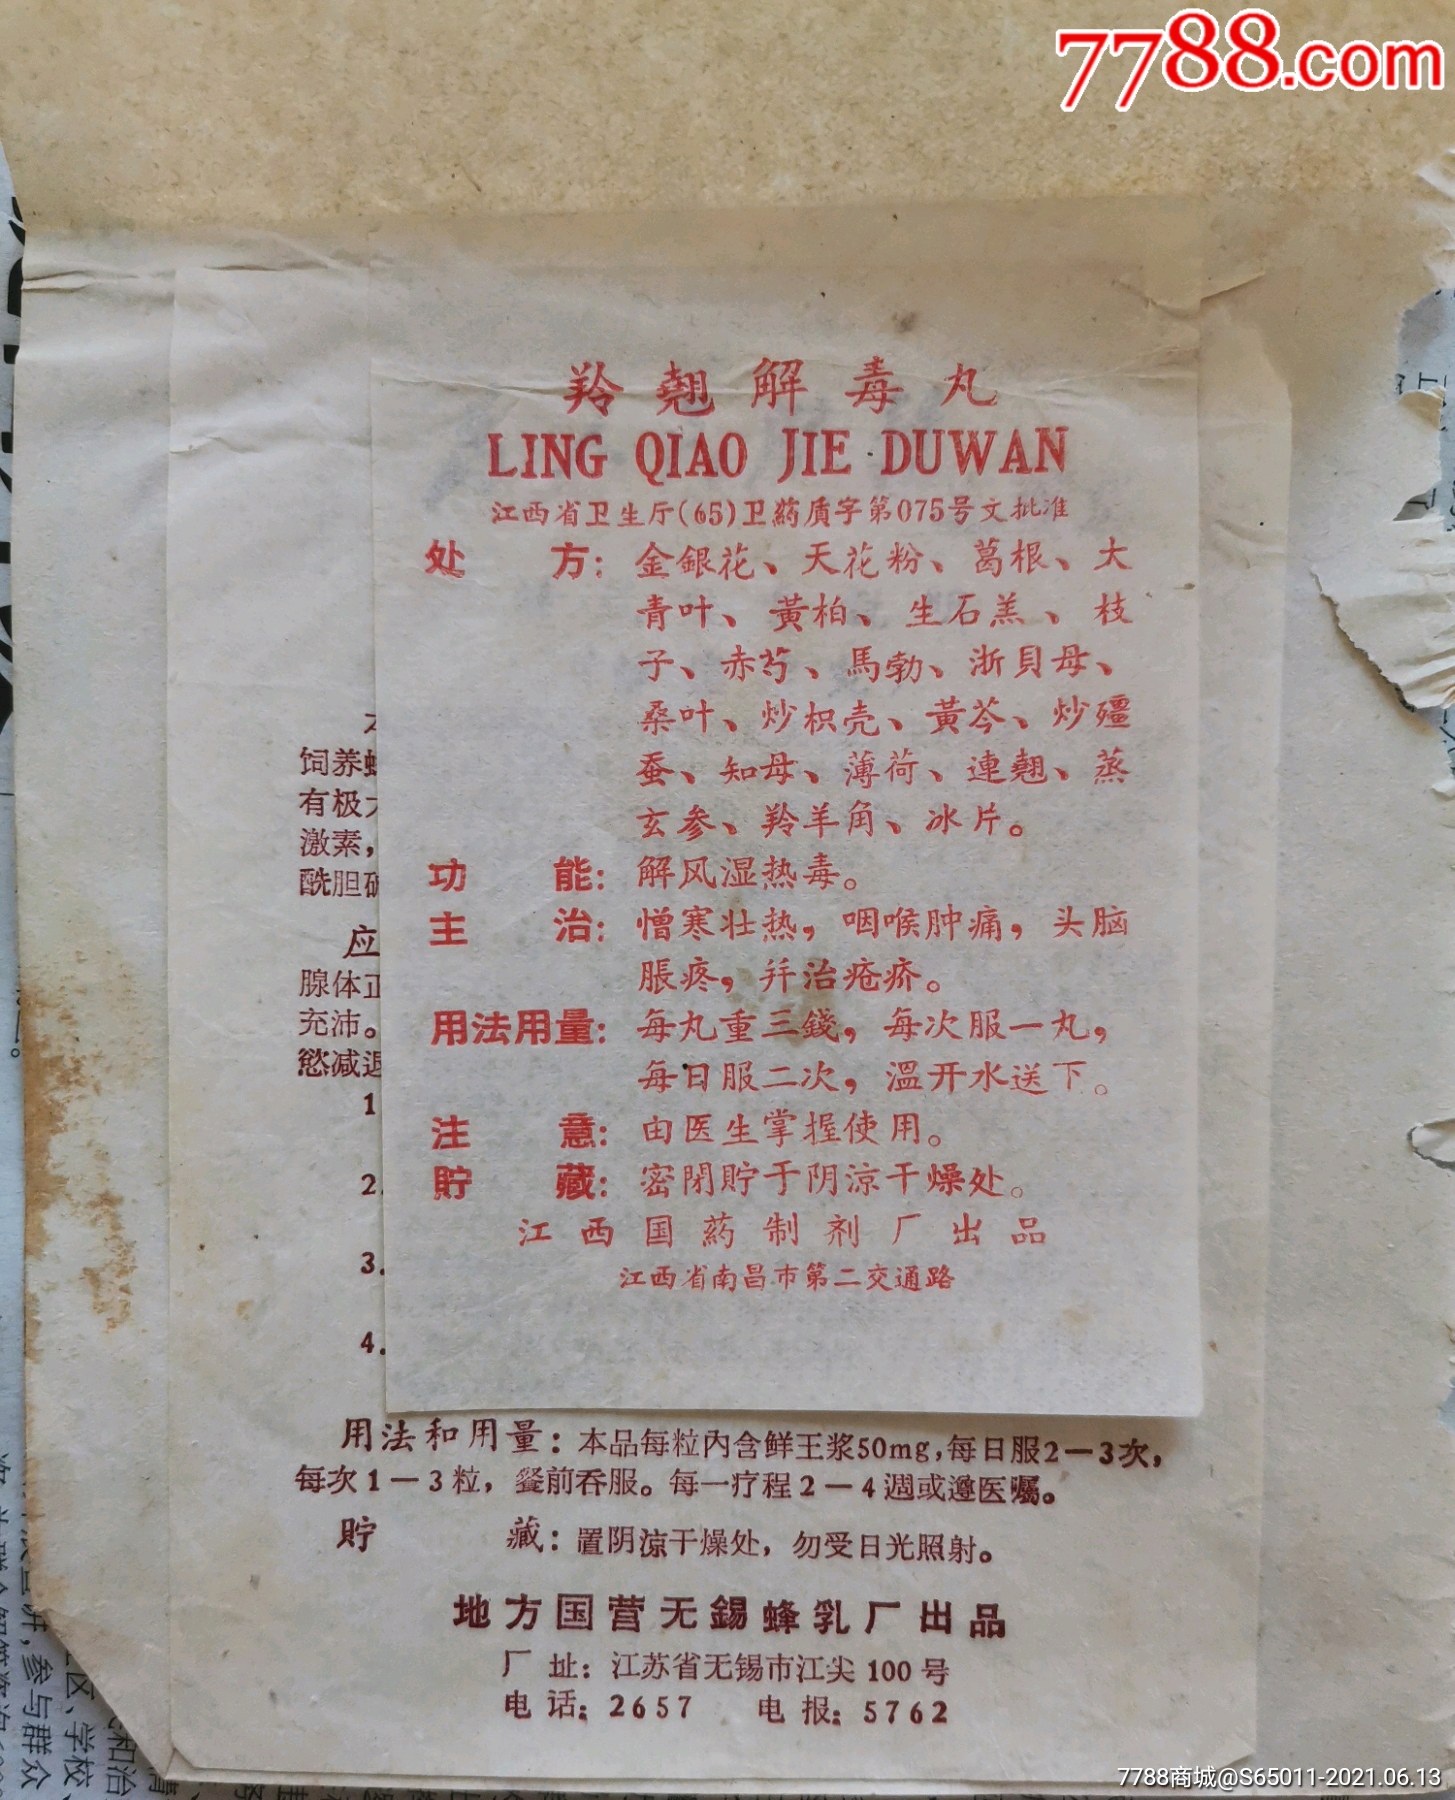 7788.com
羚翘解毒丸
LING QIAO JIE DUWAN
江西省卫生厅(65)卫药质字第075号文批准
处 方：金銀花、天花粉、葛根、大
青叶、黃柏、生石羔、枝
子、赤芍、馬勃、浙貝母、
桑叶、炒枳壳、黃芩、炒殭
蚕、知母、薄荷、連翘、蒸
玄参、羚羊角、冰片。
功 能：解风湿热毒。
主 治：憎寒壮热，咽喉肿痛，头脑
脹疼，幷治疮疥。
用法用量：每丸重三錢，每次服一丸，
每日服二次，溫开水送下。
注 意：由医生掌握使用。
貯 藏：密閉貯于阴涼干燥处。
江西国药制剂厂出品
江西省南昌市第二交通路
饲养
有极
激素，
酰胆
应
腺体正
充沛。
慾减退
1
2.
3.
4.
用法和用量：本品每粒内含鲜王浆50mg，每日服2－3次，
每次1－3粒，餐前吞服。每一疗程2－4週或遵医嘱。
貯 藏：置阴凉干燥处，勿受日光照射。
地方国营无錫蜂乳厂出品
厂 址：江苏省无锡市江尖100号
电 话：2657 电 报：5762
区、学校、
参与群众
和治
7788商城@S65011-2021.06.13